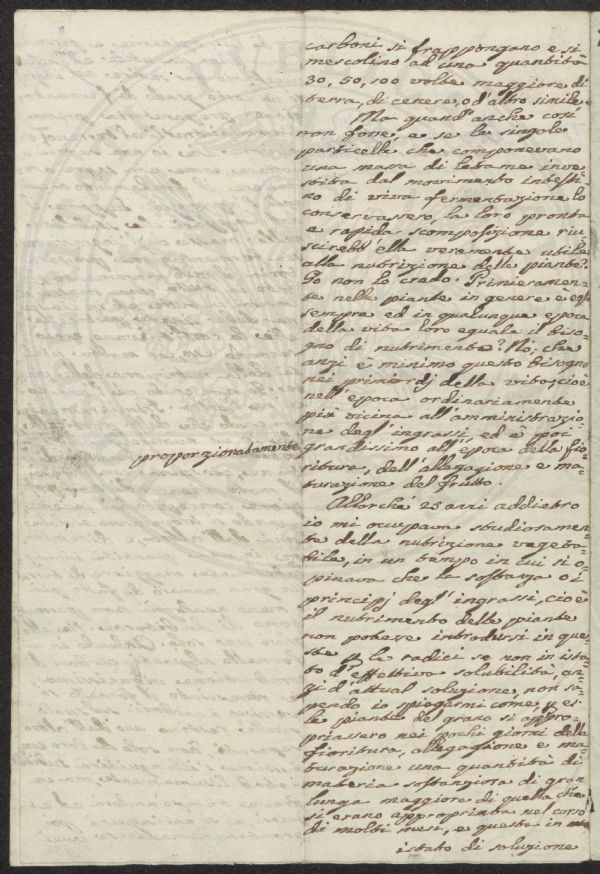 carboni si frappongano e si
mescolino ad una quantità
30, 50, 100 volte maggiore di
terra, di cenere, o d'altro simile.
Ma quand'anche così
non fosse, e se le singole
particelle che componevano
una massa di letame inve
stita dal movimento intesti
no di viva fermentazione lo
conservassero, la loro pronta
e rapida scomposizione riu
scirebb'ella veramente utile
alla nutrizione delle piante?
Io non lo credo. Primieramen-
te nelle piante in genere è egli
sempre ed in qualunque epoca
della vita loro eguale il biso-
gno di nutrimento? Nò; che
anzi è minimo questo bisogno
nei primordj della vita, cioè
nell'epoca ordinariamente
più vicina all'amministrazio-
ne degl'ingrassi, ed è poi
proporzionatamente
grandissimo all'epoca della fio-
ritura, dell'allegagione e ma-
turazione del frutto.
Allorché 25 anni addietro
io mi occupava studiosamen-
te della nutrizione vegeta-
bile, in un tempo in cui si o-
pinava che la sostanza o i
principj degl'ingrassi, cioè
il nutrimento delle piante
non potesse introdursi in que-
ste p le radici se non in ista-
to d'effettiva solubilità, an-
zi d'attual soluzione, non sa-
pendo io spiegarmi come, p es
le piante del grano si appro-
priassero nei pochi giorni della
fioritura, allegagione e ma-
turazione una quantità di
materia sostanziosa di gran
lunga maggiore di quella che
si erano appropriata nel corso
di molti mesi, e questa in
istato di soluzione